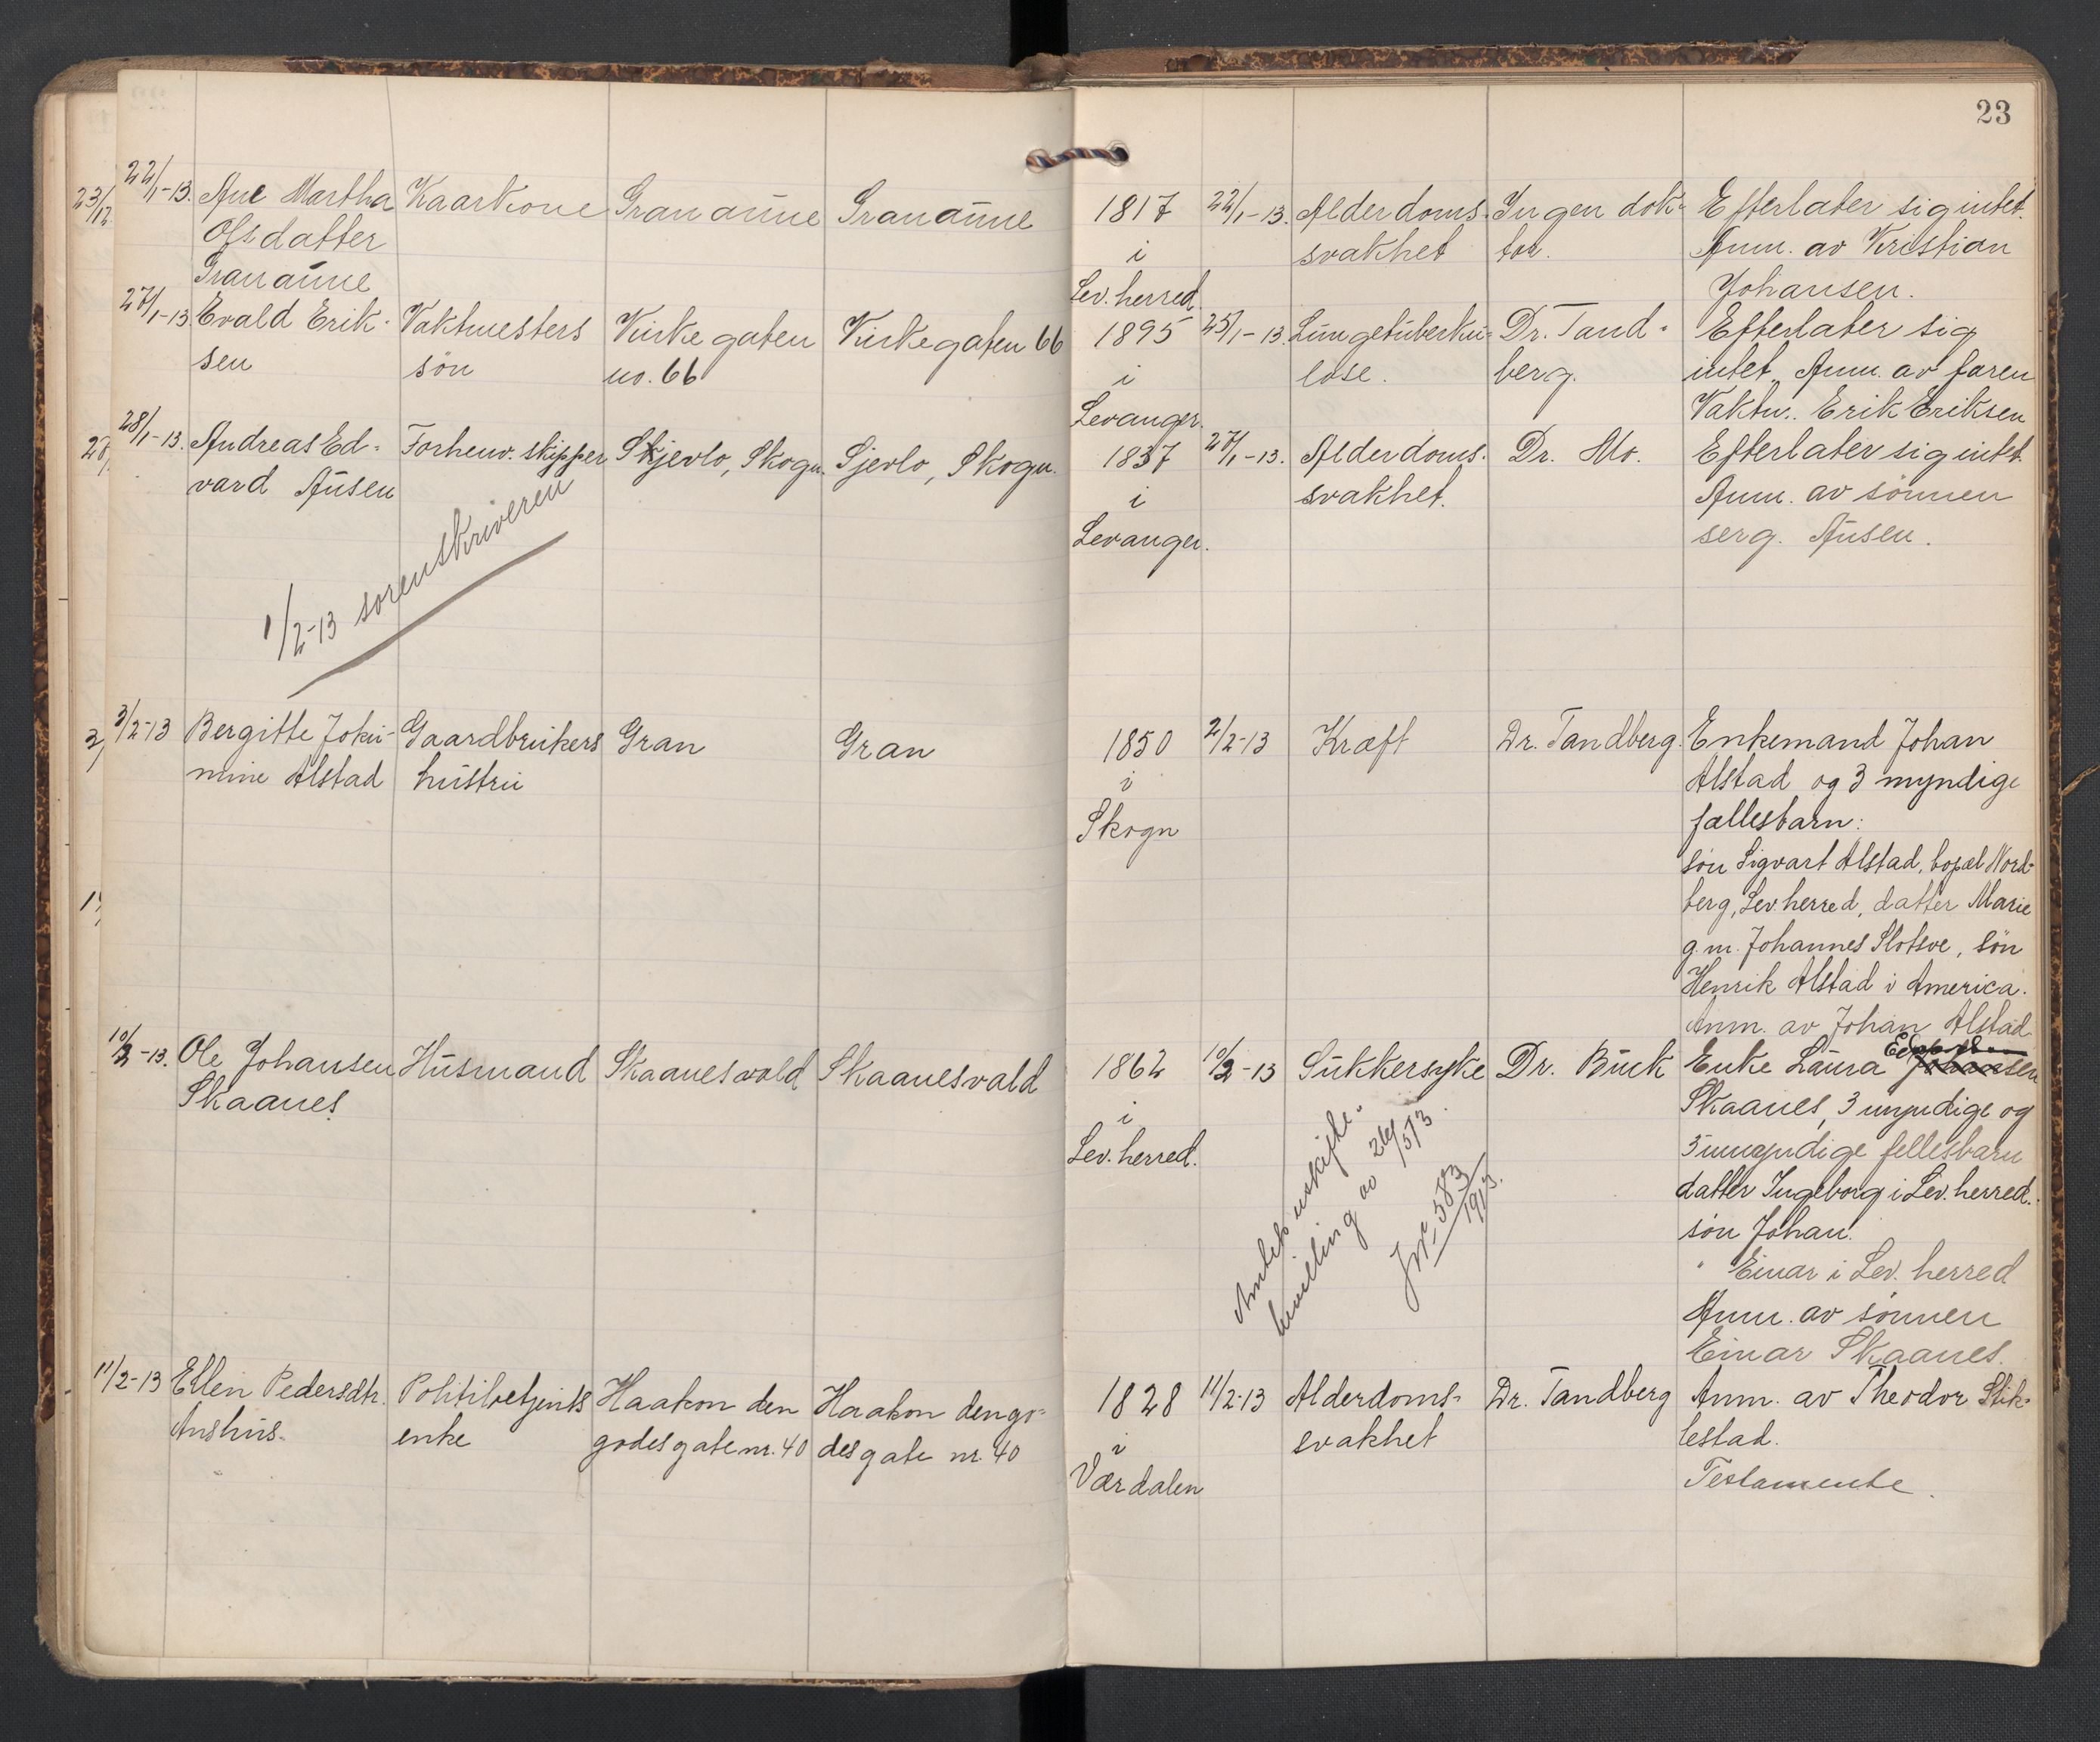 23
22/1-13. Ane Martha Kaarkone Granaune Granaune 1817 22/1-13. Alderdoms- Ingen dok- Efterlater sig intet.
Olsdatter i svakhet tor. Anm. av Kristian
Granaune Lev. herred. Johansen.
27/1-13 Evald Erik- Vaktmesters Kirkegaten Kirkegaten 66 1895 25/1-13. Lungetuberku- Dr. Tand- Efterlater sig
sen søn no. 66 i lose. berg. intet. Anm. av faren
Levanger. Vaktm. Erik Eriksen
28/1-13. Andreas Ed- Forhenv. skipper Skjevlo, Skogn. Sjevlo, Skogn. 1837 27/1-13. Alderdoms- Dr. Mo. Efterlater sig intet.
vard Ausen i svakhet. Anm. av sønnen
Levanger. serg. Ausen.
1/2-13 sorenskriveren
3/2-13 Bergitte Joku- Gaardbrukers Gran Gran 1850 2/2-13 Kræft Dr. Tandberg. Enkemand Johan
mine Alstad hustru i Alstad og 3 myndige
Skogn fællesbarn:
søn Sigvart Alstad, bopæl Nord-
berg, Lev. herred, datter Marie
g.m. Johannes Slotsve, søn
Henrik Alstad i America.
Anm. av Johan Alstad
10/2-13. Ole Johansen Husmand Skaanesvald Skaanesvald 1862 10/2-13 Sukkersyke Dr. Buck Enke Laura Johansen
Skaanes. i Skaanes, 3 myndige og
Lev. herred. 5 umyndige fellesbarn
datter Ingeborg i Lev. herred.
søn Johan.
" Einar i Lev. herred
Anm. av sønnen
Einar Skaanes.
Amtets uskifte-
bevilling av 26/5 13.
Jnr. 583/1913.
11/2-13 Ellen Pedersdtr. Politibetjents Haakon den Haakon den go- 1828 11/2-13 Alderdoms- Dr. Tandberg Anm. av Theodor Stik-
Aushus. enke godes gate nr. 40 des gate nr. 40 i svakhet lestad.
Værdalen Testamente.